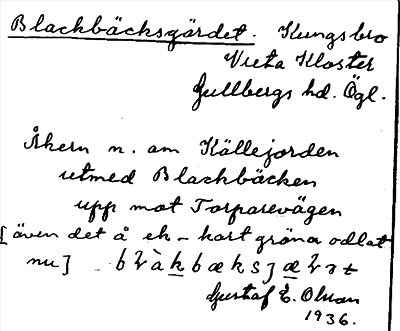 Blackbäcksgärdet. Kungsbro
Vreta Kloster
Gullbergs hd. Ögl.
Åkern n. om Källejorden
utmed Blackbäcken
upp mot Torparevägen
[även det å ek-kart gröna odlat
nu]
Gustaf E. Olsson
1936.